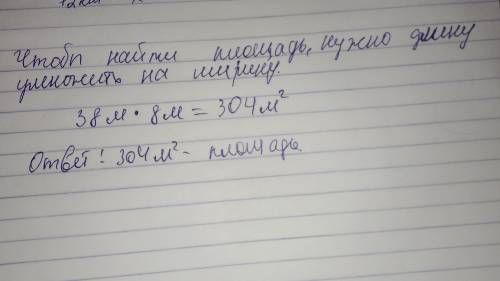 Чтобы найти площадь, нужно длину
умножить на ширину.
38м · 8м = 304м²
Ответ: 304м² - площадь.